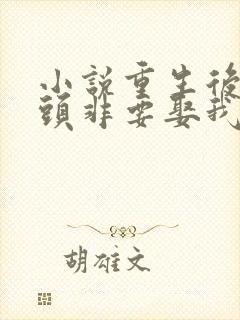 小說重生後
頭非要娶我
胡雄文